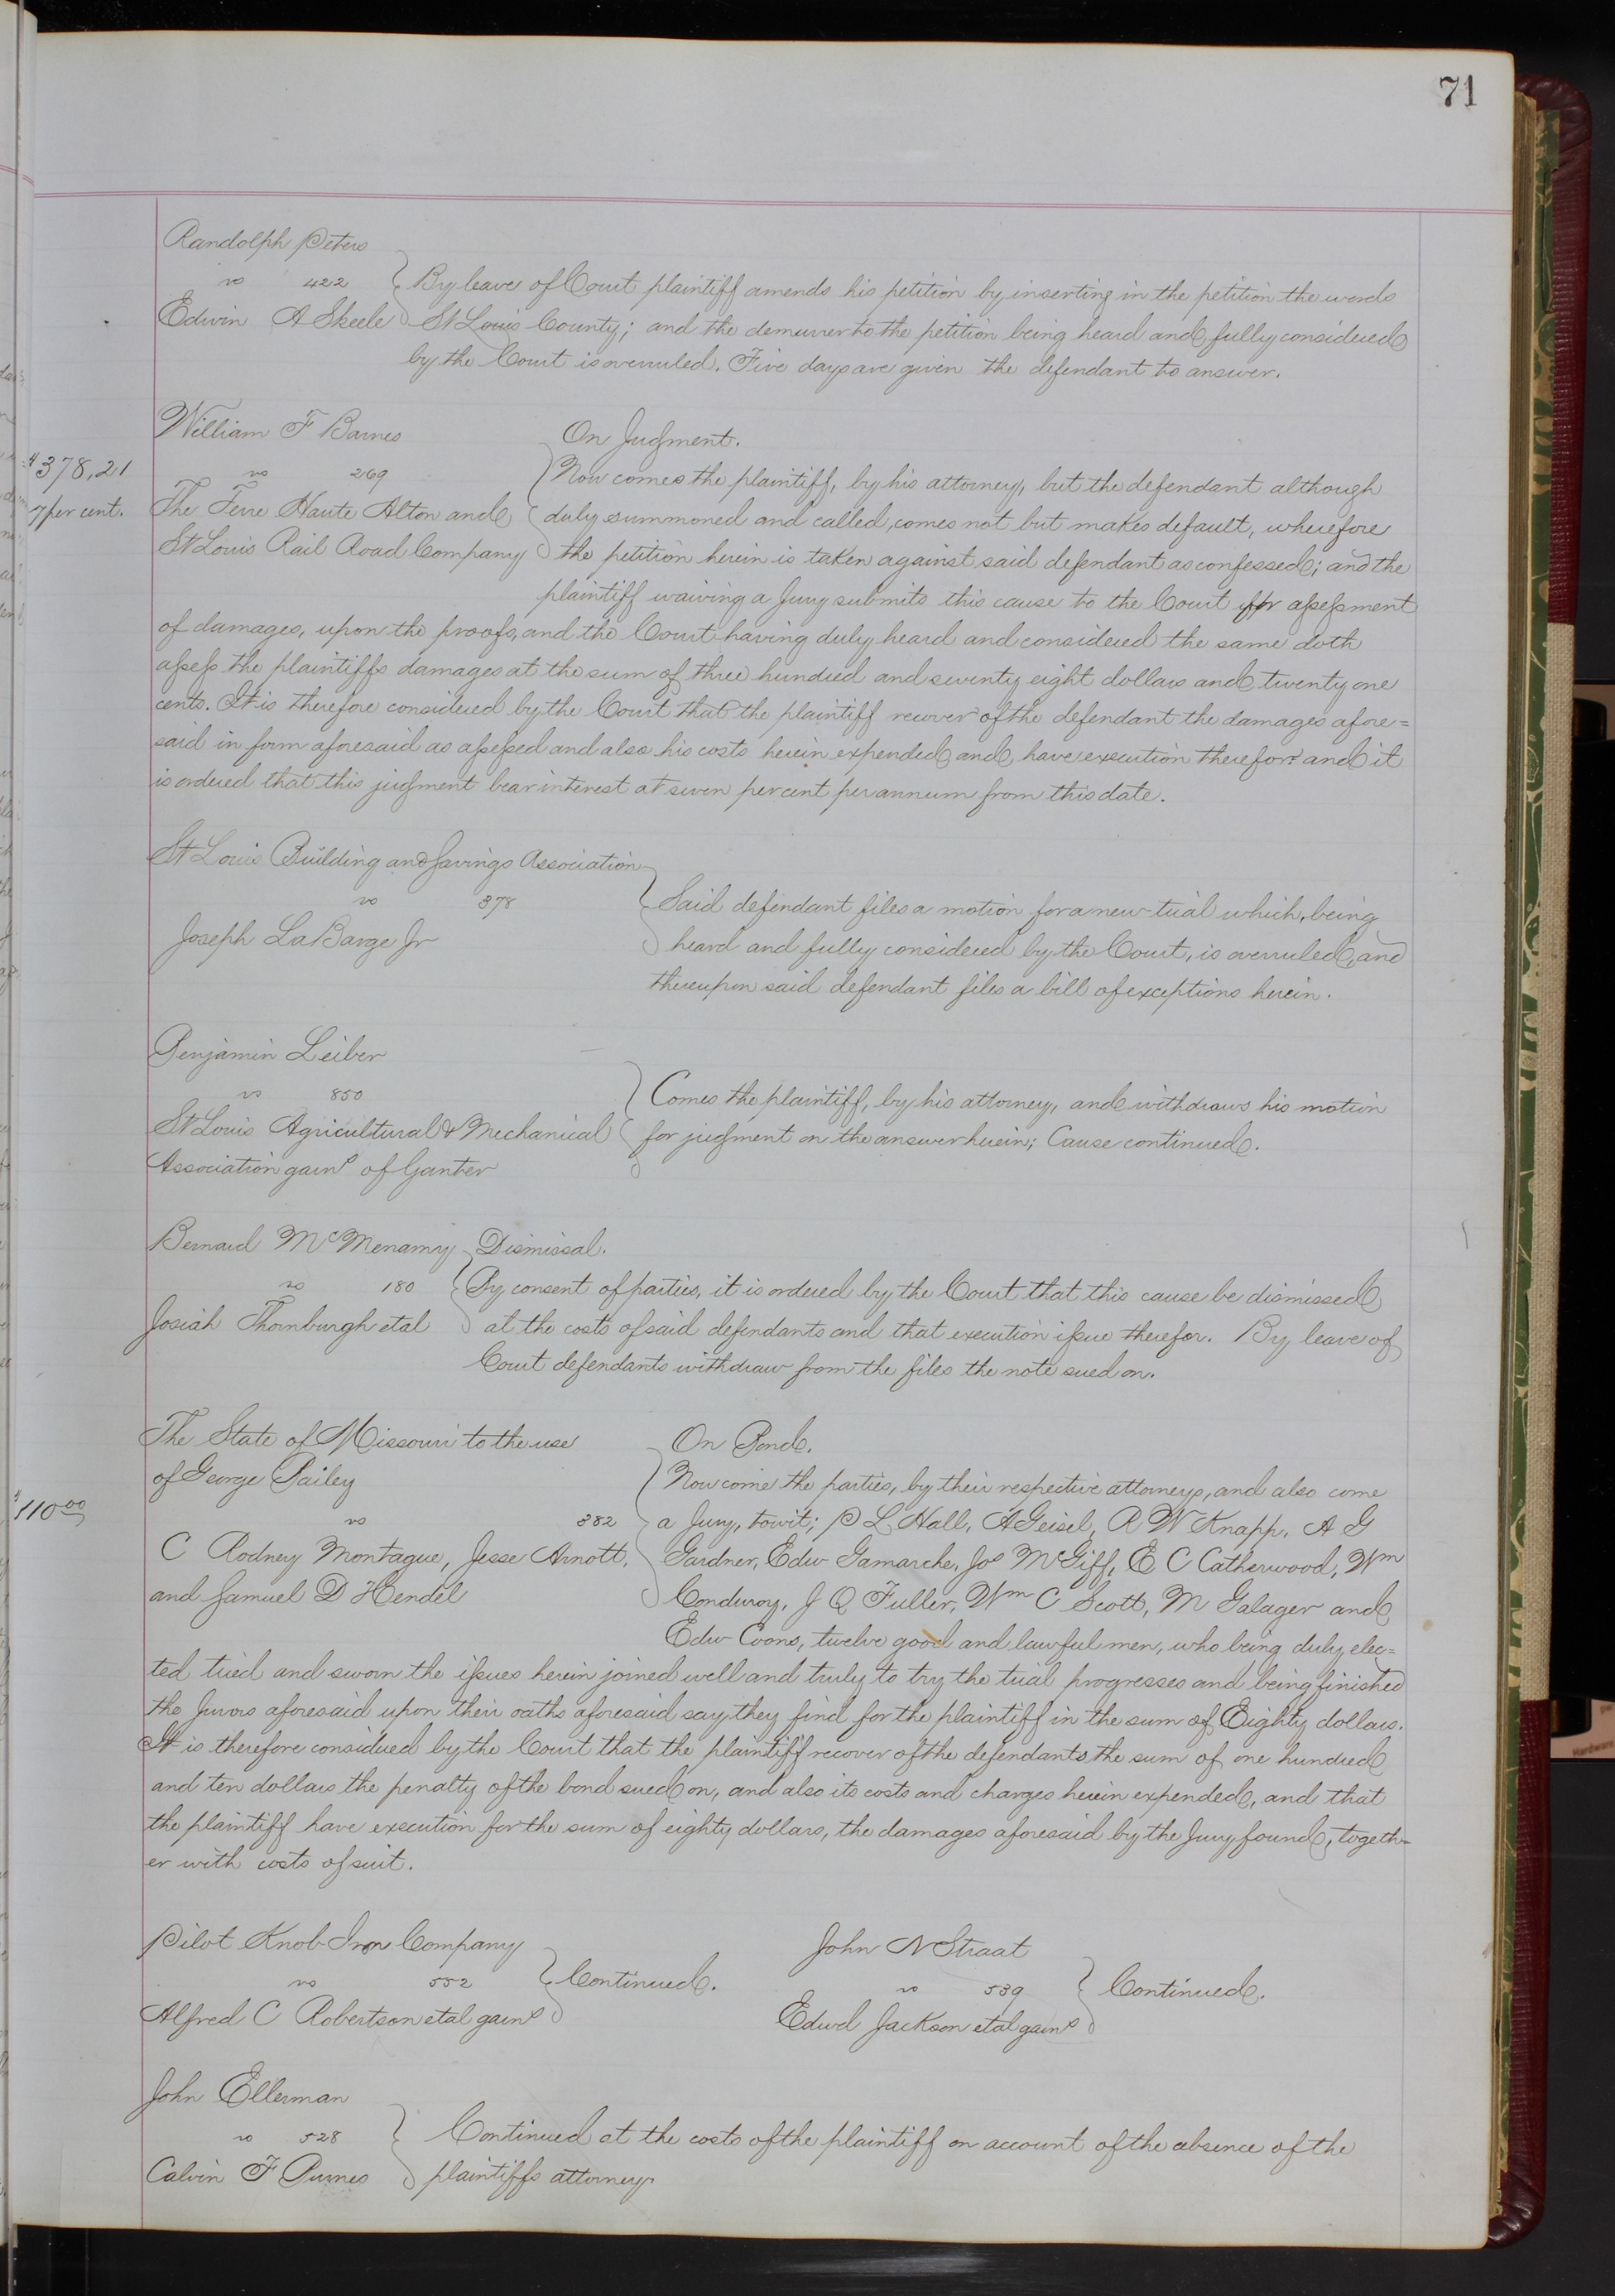 71
Randolph Peters
vs 422
Edwin A Skeele
By leave of Court plaintiff amends his petition by inserting in the petition the words
St Louis County; and the demurrer to the petition being heard and fully considered
by the Court is overruled. Five days are given the defendant to answer.
William F Barnes
vs 269
The Terre Haute Alton and
St Louis Rail Road Company
$378,21
7 per cent.
On Judgment.
Now comes the plaintiff, by his attorney, but the defendant although
duly summoned and called, comes not but makes default, wherefore
the petition herein is taken against said defendant as confessed; and the
plaintiff waiving a Jury submits this cause to the Court for assessment
of damages, upon the proofs, and the Court having duly heard and considered the same doth
assess the plaintiffs damages at the sum of three hundred and seventy eight dollars and twenty one
cents. It is therefore considered by the Court that the plaintiff recover of the defendant the damages afore=
said in form aforesaid as assessed and also his costs herein expended and have execution therefor and it
is ordered that this judgment bear interest at seven per cent per annum from this date.
St Louis Building and Savings Association
vs 378
Joseph LaBarge Jr
Said defendant files a motion for a new trial which, being
heard and fully considered by the Court, is overruled, and
thereupon said defendant files a bill of exceptions herein.
Benjamin Leiber
vs 850
St Louis Agricultural & Mechanical
Association gainsd of Ganter
Comes the plaintiff, by his attorney, and withdraws his motion
for judgment on the answer herein; Cause continued.
Bernard McMenamy
vs 180
Josiah Thornburgh etal
Dismissal.
By consent of parties, it is ordered by the Court that this cause be dismissed
at the costs of said defendants and that execution issue therefor. By leave of
Court defendants withdraw from the files the note sued on.
The State of Missouri to the use
of George Bailey
vs 382
C Rodney Montague, Jesse Arnott,
and Samuel D Hendel
$110.00
On Bond.
Now come the parties, by their respective attorneys, and also come
a Jury, towit; P L Hall, A Geisel, R W Knapp, A G
Gardner, Edw Gamarche, Jos McGiff, E C Catherwood, Wm
Conduroy, J Q Fuller, Wm C Scott, M Galager and
Edw Coons, twelve good and lawful men, who being duly elec=
ted tried and sworn the issues herein joined well and truly to try the trial progresses and being finished
the Jurors aforesaid upon their oaths aforesaid say they find for the plaintiff in the sum of Eighty dollars.
It is therefore considered by the Court that the plaintiff recover of the defendants the sum of one hundred
and ten dollars the penalty of the bond sued on, and also its costs and charges herein expended, and that
the plaintiff have execution for the sum of eighty dollars, the damages aforesaid by the Jury found, togeth=
er with costs of suit.
Pilot Knob Iron Company
vs 552
Alfred C Robertson etal gainsd
Continued.
John N Straat
vs 539
Edwd Jackson etal gainsd
Continued.
John Ellerman
vs 528
Calvin F Burnes
Continued at the costs of the plaintiff on account of the absence of the
plaintiffs attorney.